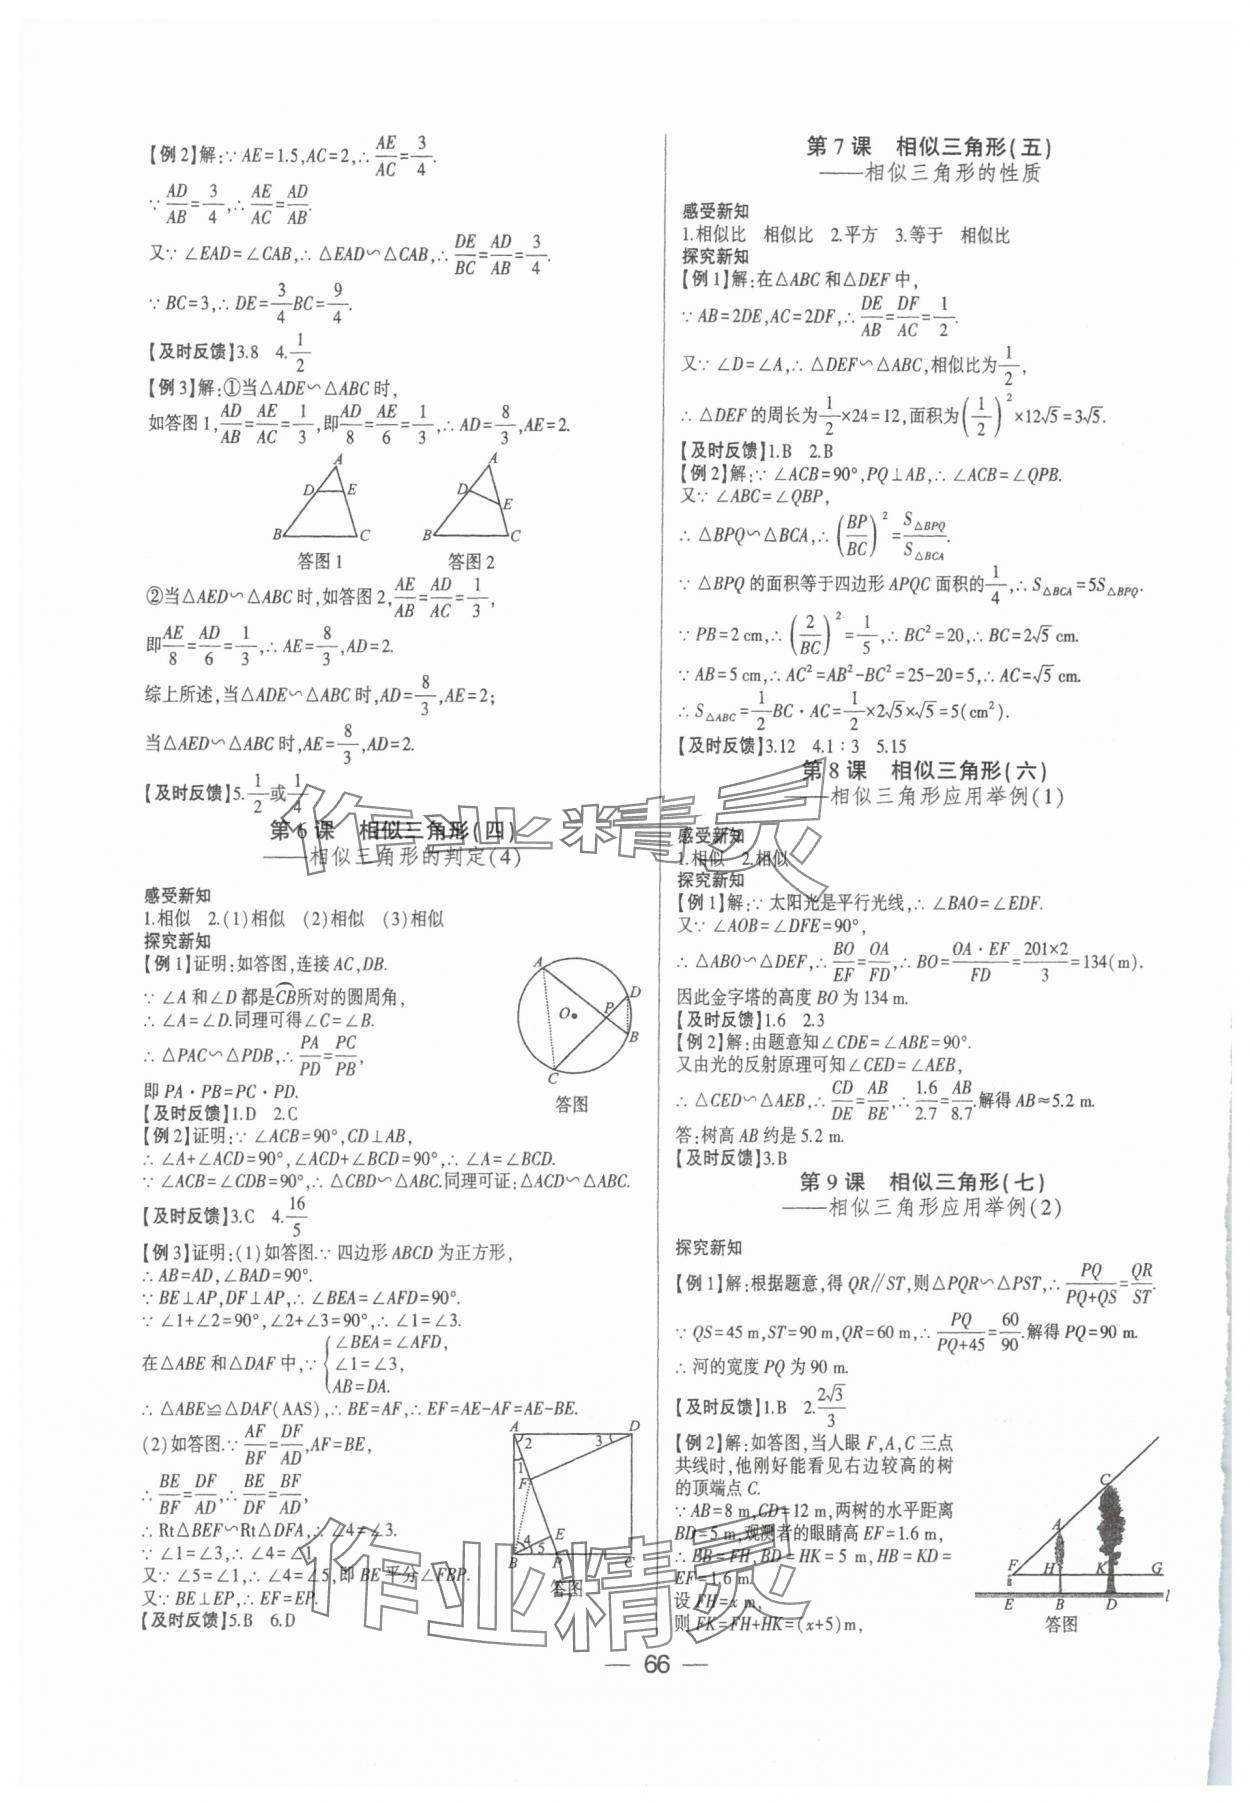 【例2】解:∵ AE=1.5,AC=2,∴ AE/AC=3/4.
∵ AD/AB=3/4,∴ AE/AC=AD/AB.
又∵ ∠EAD=∠CAB,∴ △EAD∽△CAB,∴ DE/BC=AD/AB=3/4.
∵ BC=3,∴ DE=3/4BC=9/4.
【及时反馈】3.8 4.1/2
【例3】解:①当△ADE∽△ABC时,
如答图1,AD/AB=AE/AC=1/3,即AD/8=AE/6=1/3,∴ AD=8/3,AE=2.
A D E B C
A D E B C
答图1 答图2
②当△AED∽△ABC时,如答图2,AE/AB=AD/AC=1/3,
即AE/8=AD/6=1/3,∴ AE=8/3,AD=2.
综上所述,当△ADE∽△ABC时,AD=8/3,AE=2;
当△AED∽△ABC时,AE=8/3,AD=2.
【及时反馈】5.1/2或1/4
第6课 相似三角形(四)
——相似三角形的判定(4)
感受新知
1.相似 2.(1)相似 (2)相似 (3)相似
探究新知
【例1】证明:如答图,连接AC,DB.
∵ ∠A和∠D都是CB所对的圆周角,
∴ ∠A=∠D.同理可得∠C=∠B.
∴ △PAC∽△PDB,∴ PA/PD=PC/PB,
即PA·PB=PC·PD.
A D P O B C
答图
【及时反馈】1.D 2.C
【例2】证明:∵ ∠ACB=90°,CD⊥AB,
∴ ∠A+∠ACD=90°,∠ACD+∠BCD=90°,∴ ∠A=∠BCD.
∵ ∠ACB=∠CDB=90°,∴ △CBD∽△ABC.同理可证:△ACD∽△ABC.
【及时反馈】3.C 4.16/5
【例3】证明:(1)如答图.∵ 四边形ABCD为正方形,
∴ AB=AD,∠BAD=90°.
∵ BE⊥AP,DF⊥AP,∴ ∠BEA=∠AFD=90°.
∵ ∠1+∠2=90°,∠2+∠3=90°,∴ ∠1=∠3.
在△ABE和△DAF中,∵ {∠BEA=∠AFD,
∠1=∠3,
AB=DA.
∴ △ABE≌△DAF(AAS),∴ BE=AF,∴ EF=AE-AF=AE-BE.
(2)如答图.∵ AF/BF=DF/AD,AF=BE,
∴ BE/BF=DF/AD,∴ BE/DF=BF/AD,
∴ Rt△BEF∽Rt△DFA,∴ ∠4=∠3.
∵ ∠1=∠3,∴ ∠4=∠1.
又∵ ∠5=∠1,∴ ∠4=∠5,即BE平分∠FBP.
又∵ BE⊥EP,∴ EF=EP.
A D 2 3 1 F E 4 5 B P C
答图
【及时反馈】5.B 6.D
第7课 相似三角形(五)
——相似三角形的性质
感受新知
1.相似比 相似比 2.平方 3.等于 相似比
探究新知
【例1】解:在△ABC和△DEF中,
∵ AB=2DE,AC=2DF,∴ DE/AB=DF/AC=1/2.
又∵ ∠D=∠A,∴ △DEF∽△ABC,相似比为1/2,
∴ △DEF的周长为1/2×24=12,面积为(1/2)²×12√5=3√5.
【及时反馈】1.B 2.B
【例2】解:∵ ∠ACB=90°,PQ⊥AB,∴ ∠ACB=∠QPB.
又∵ ∠ABC=∠QBP,
∴ △BPQ∽△BCA,∴ (BP/BC)²=S△BPQ/S△BCA.
∵ △BPQ的面积等于四边形APQC面积的1/4,∴ S△BCA=5S△BPQ.
∵ PB=2 cm,∴ (2/BC)²=1/5,∴ BC²=20,∴ BC=2√5 cm.
∵ AB=5 cm,∴ AC²=AB²-BC²=25-20=5,∴ AC=√5 cm.
∴ S△ABC=1/2BC·AC=1/2×2√5×√5=5(cm²).
【及时反馈】3.12 4.1∶3 5.15
第8课 相似三角形(六)
——相似三角形应用举例(1)
感受新知
1.相似 2.相似
探究新知
【例1】解:∵ 太阳光是平行光线,∴ ∠BAO=∠EDF.
又∵ ∠AOB=∠DFE=90°,
∴ △ABO∽△DEF,∴ BO/EF=OA/FD,∴ BO=OA·EF/FD=201×2/3=134(m).
因此金字塔的高度BO为134 m.
【及时反馈】1.6 2.3
【例2】解:由题意知∠CDE=∠ABE=90°.
又由光的反射原理可知∠CED=∠AEB,
∴ △CED∽△AEB,∴ CD/DE=AB/BE,∴ 1.6/2.7=AB/8.7.解得AB≈5.2 m.
答:树高AB约是5.2 m.
【及时反馈】3.B
第9课 相似三角形(七)
——相似三角形应用举例(2)
探究新知
【例1】解:根据题意,得QR∥ST,则△PQR∽△PST,∴ PQ/PQ+QS=QR/ST.
∵ QS=45 m,ST=90 m,QR=60 m,∴ PQ/PQ+45=60/90.解得PQ=90 m.
∴ 河的宽度PQ为90 m.
【及时反馈】1.B 2.2√3/3
【例2】解:如答图,当人眼F,A,C三点
共线时,他刚好能看见右边较高的树
的顶端点C.
∵ AB=8 m,CD=12 m,两树的水平距离
BD=5 m,观测者的眼睛高EF=1.6 m,
∴ BB=FH,BD=HK=5 m,HB=KD=
EF=1.6 m.
设FH=x m,
则FK=FH+HK=(x+5)m,
C A F H K G E B D l
答图
作业精灵
作业精灵
— 66 —